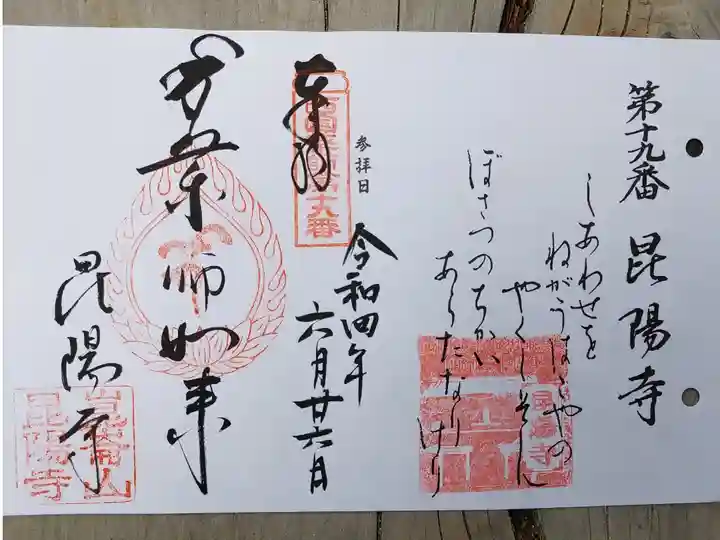 第十九番 昆陽寺
しあわせを
ねがうはゝやの
やくしそん
ぼさつのちかい
あらたなりけり
参拝日
令和四年
六月廿六月
奉拝
薬師如来
昆陽寺
昆陽寺